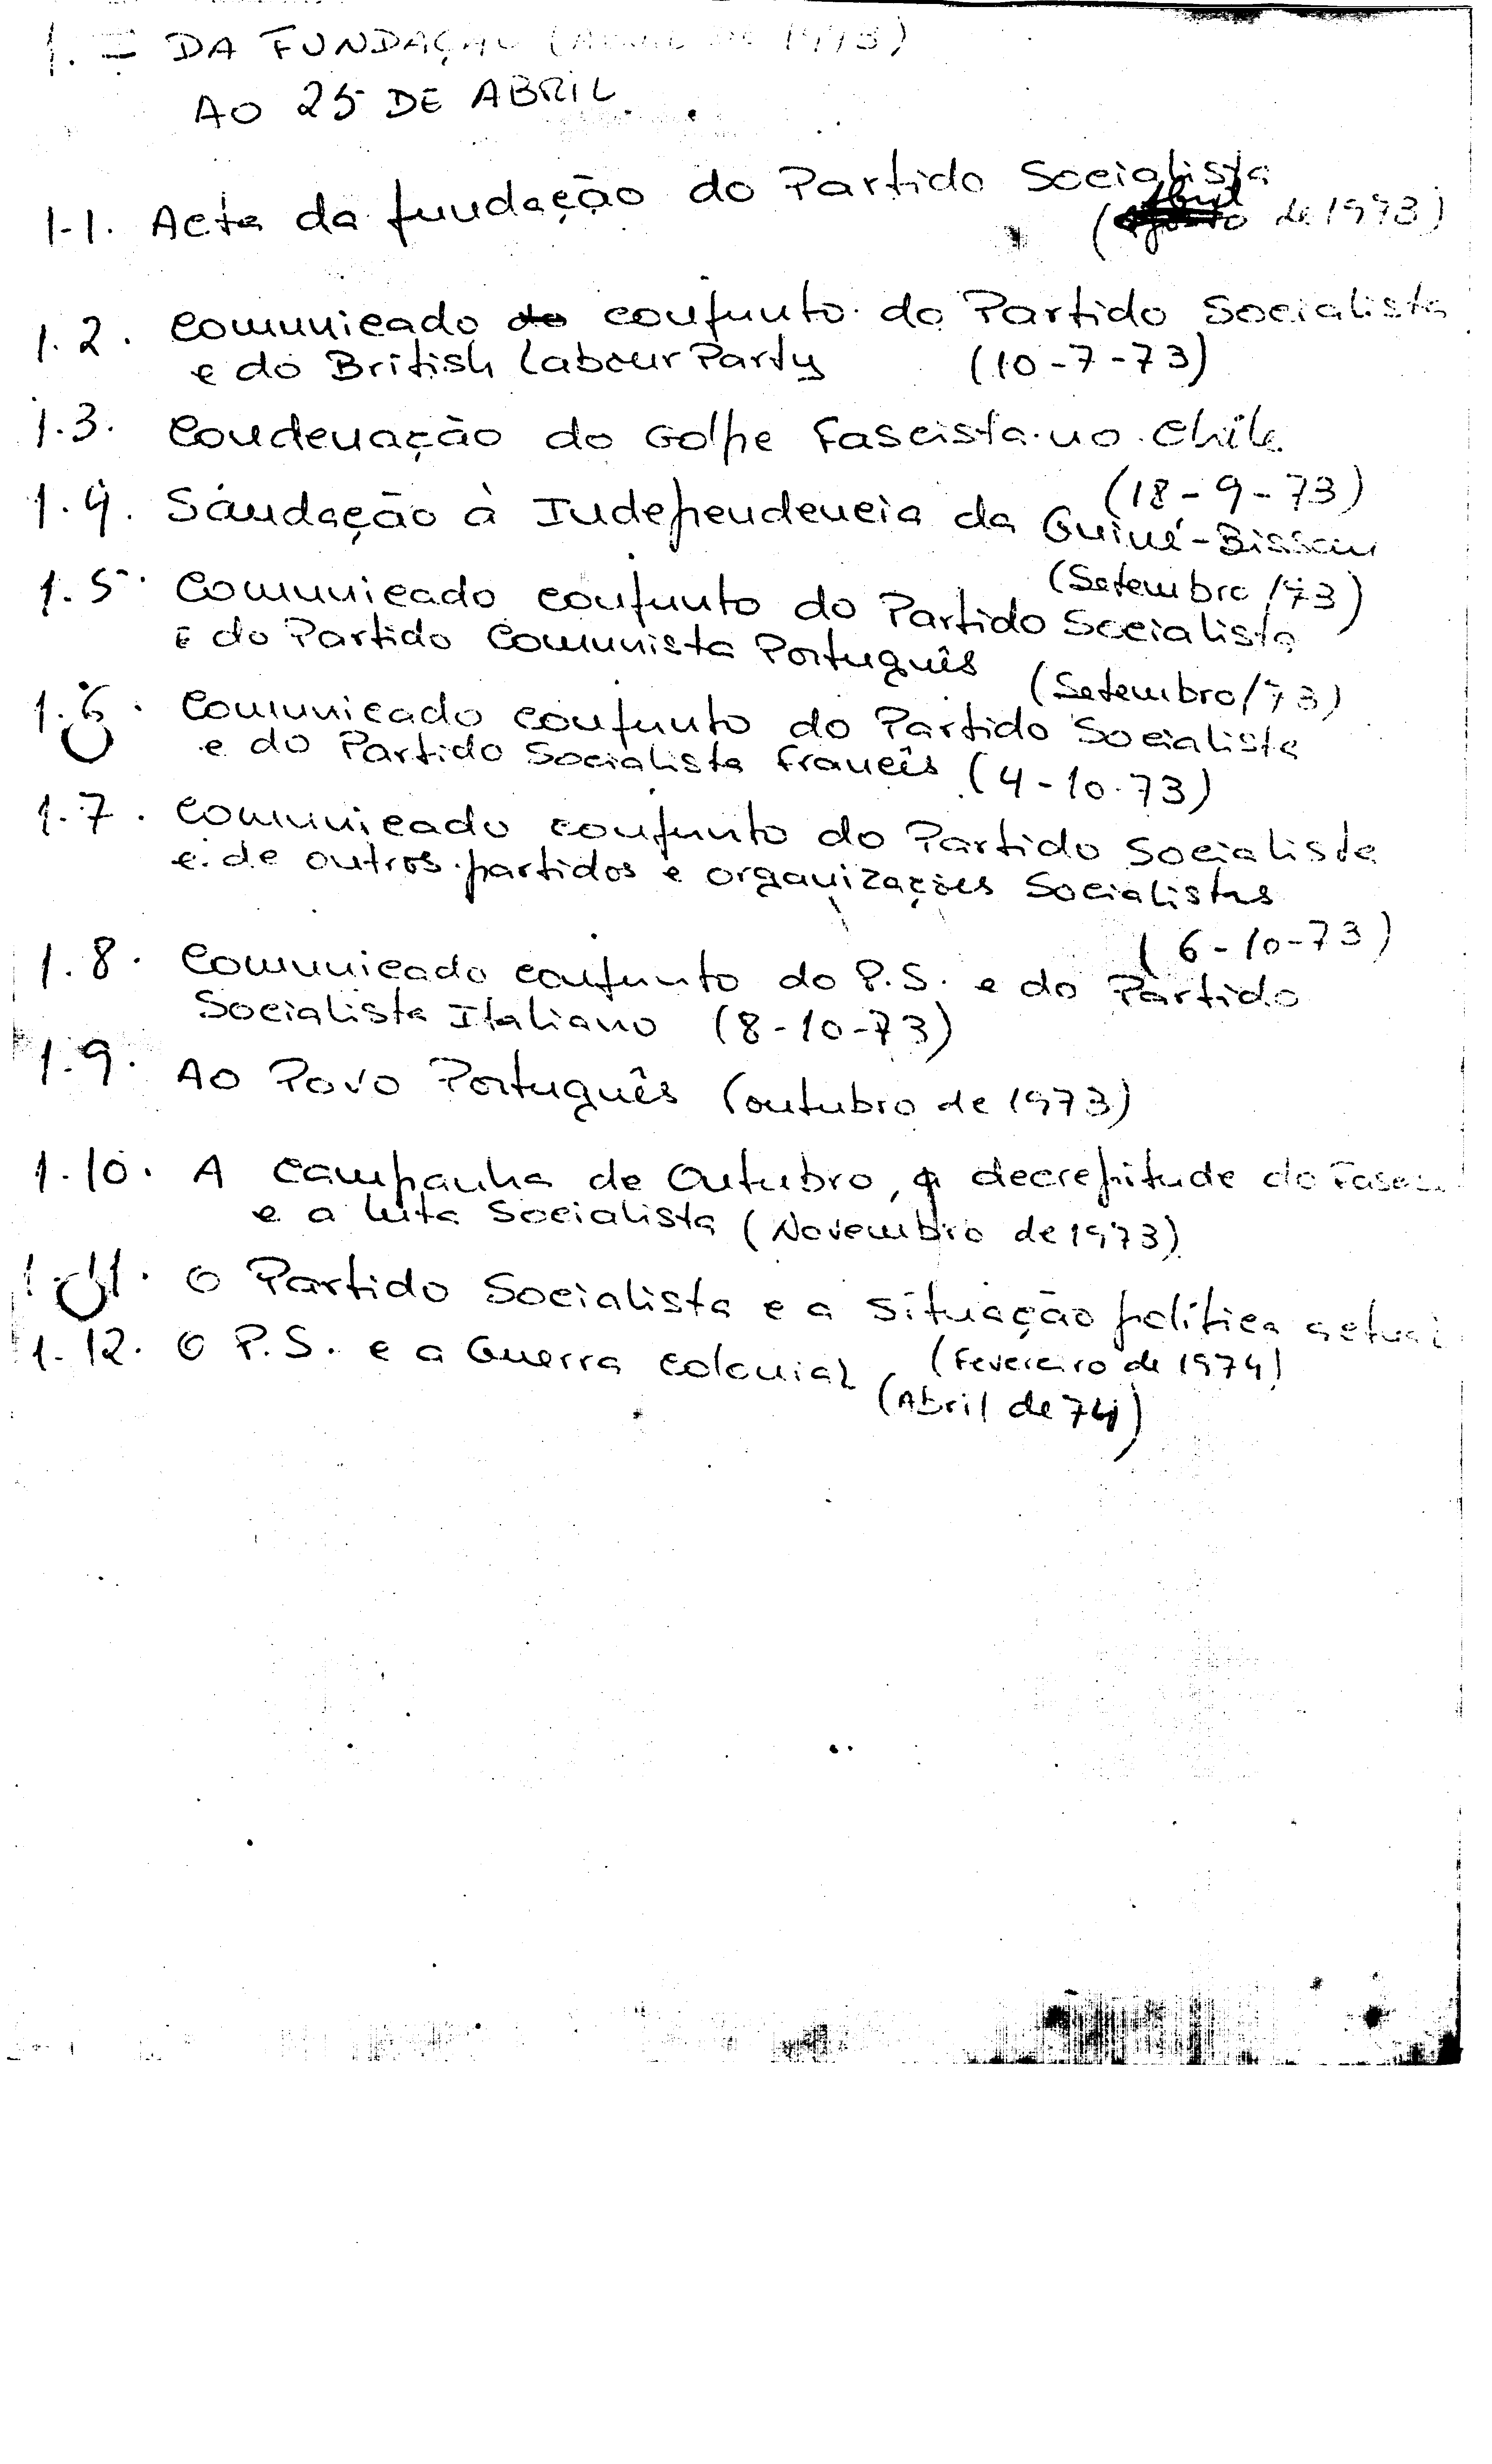 1. - DA FUNDAÇÃO (ABRIL DE 1973)
AO 25 DE ABRIL
1.1. Acta da fundação do Partido Socialista
(Abril de 1973)
1.2. Comunicado conjunto do Partido Socialista
e do British Labour Party (10-7-73)
1.3. Condenação do Golpe Fascista no Chile
(18-9-73)
1.4. Saudação à Independencia da Guiné-Bissau
(Setembro/73)
1.5. Comunicado conjunto do Partido Socialista
e do Partido Comunista Português (Setembro/73)
1.6. Comunicado conjunto do Partido Socialista
e do Partido Socialista Francês (4-10-73)
1.7. Comunicado conjunto do Partido Socialista
e de outros partidos e organizações Socialistas
(6-10-73)
1.8. Comunicado conjunto do P.S. e do Partido
Socialista Italiano (8-10-73)
1.9. Ao Povo Português (outubro de 1973)
1.10. A Campanha de Outubro, a decrepitude do
e a luta Socialista (Novembro de 1973)
1.11. O Partido Socialista e a situação política actual
(Fevereiro de 1974)
1.12. O P.S. e a Guerra colonial
(Abril de 74)